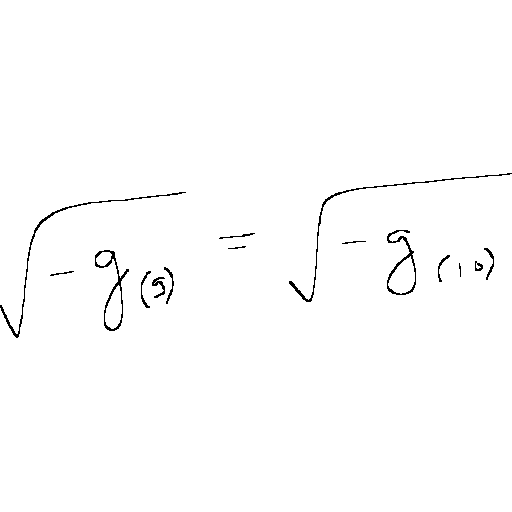 \sqrt{-g_{(9)}} = \sqrt{-g_{(10)}}